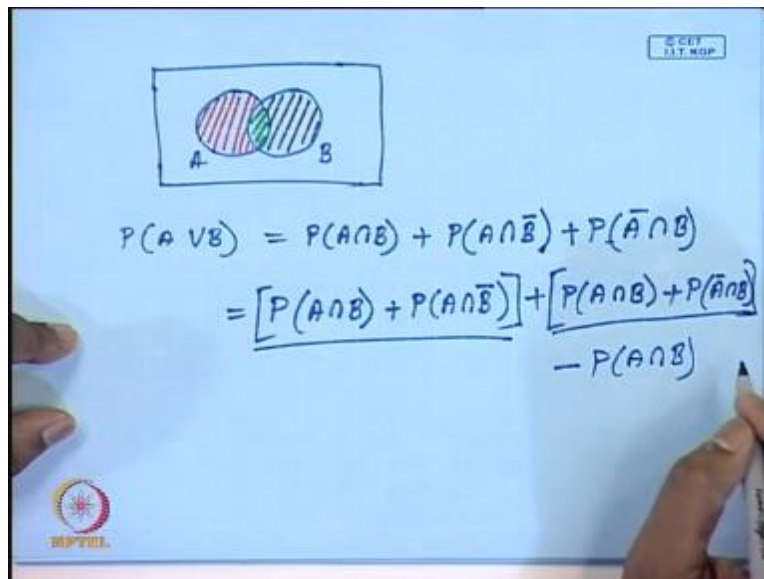 © CET
I.I.T. KGP
A B
P(A ∨ B) = P(A∩B) + P(A∩B̄) + P(Ā∩B)
= [P(A∩B) + P(A∩B̄)] + [P(A∩B) + P(Ā∩B)]
− P(A∩B)
NPTEL